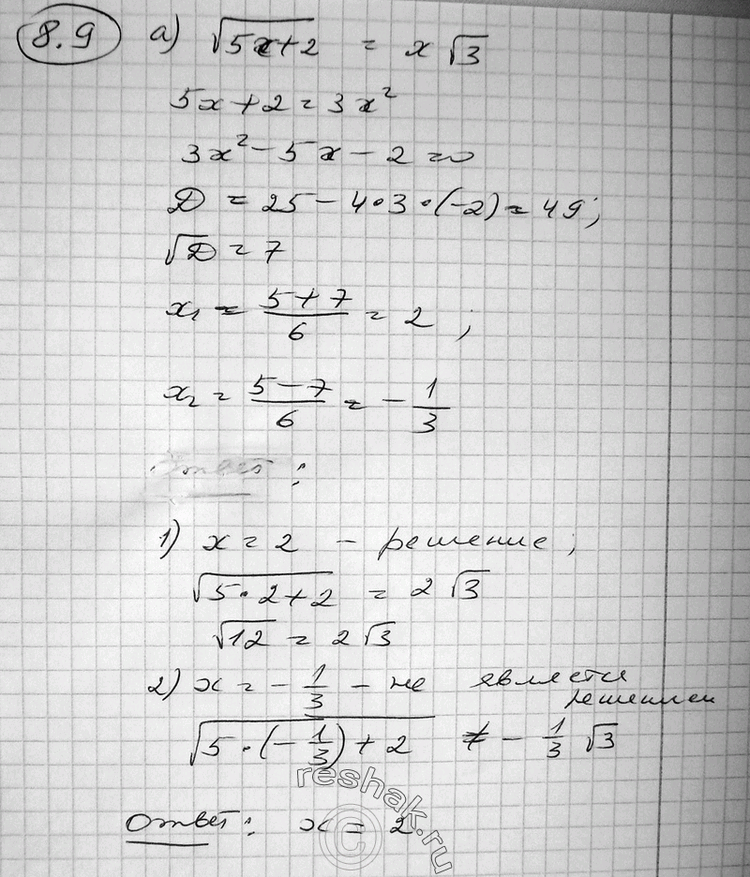 8.9 а) √(5x+2) = x√3
5x+2=3x²
3x²-5x-2=0
D = 25-4·3·(-2)=49;
√D = 7
x₁ = (5+7)/6 = 2;
x₂ = (5-7)/6 = -1/3
Ответ:
1) x=2 - решение;
√(5·2+2) = 2√3
√12 = 2√3
2) x = -1/3 - не является
решением
√(5·(-1/3)+2) ≠ -1/3 √3
reshak.ru
©
Ответ: x = 2